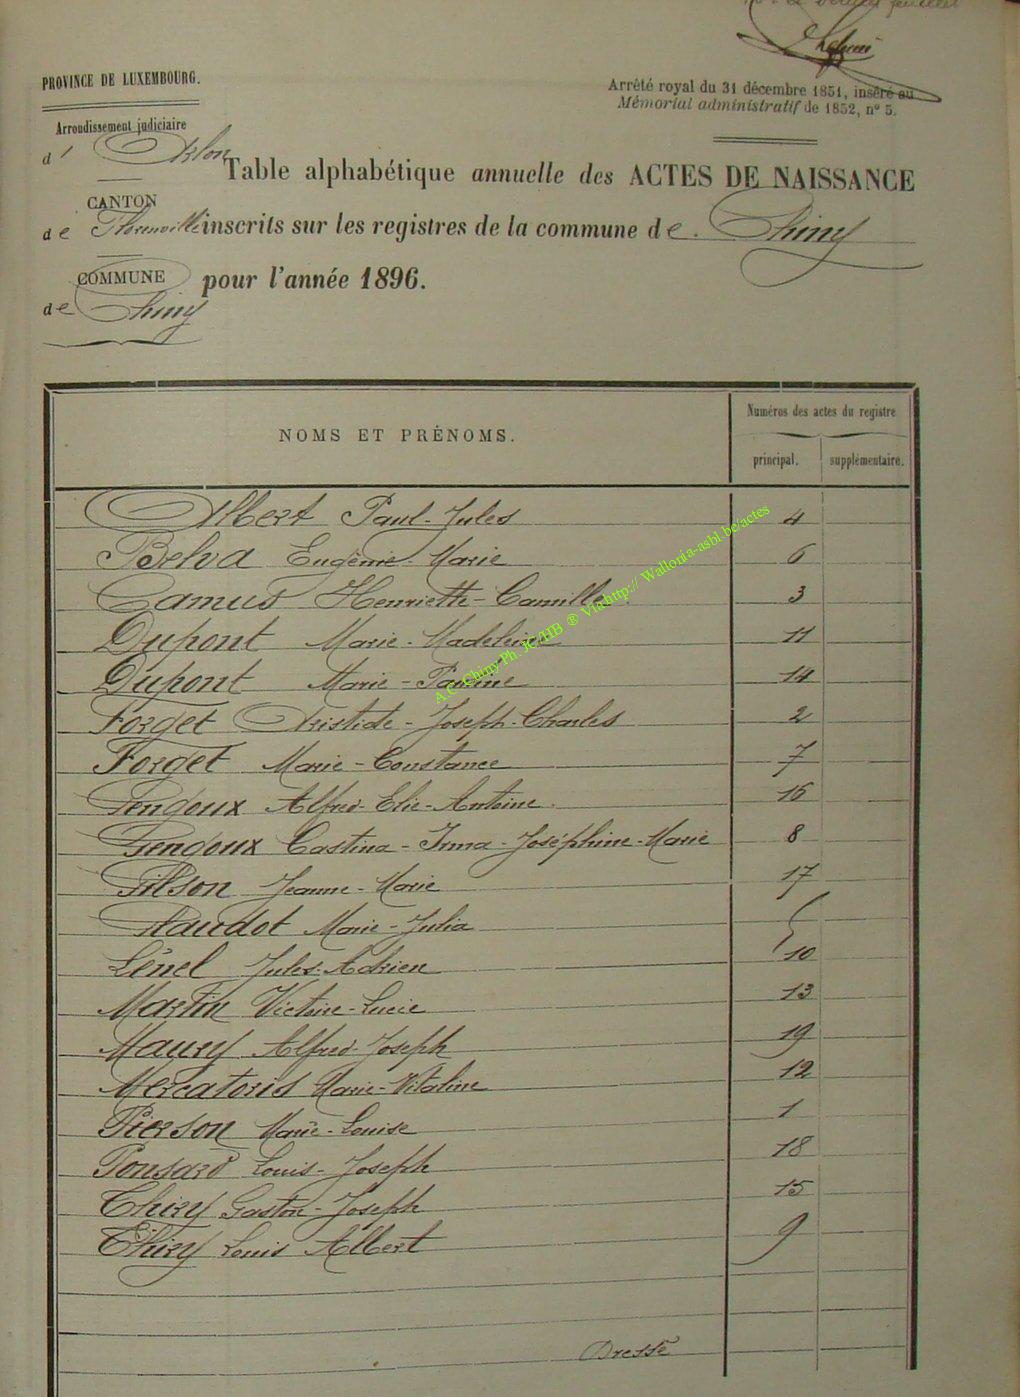 PROVINCE DE LUXEMBOURG.
Arrêté royal du 31 décembre 1851, inséré au
Mémorial administratif de 1852, n° 5.
Arrondissement judiciaire
d' Arlon
Table alphabétique annuelle des ACTES DE NAISSANCE
CANTON
de Florenville
inscrits sur les registres de la commune de Chiny
COMMUNE
de Chiny
pour l'année 1896.
NOMS ET PRÉNOMS.
Numéros des actes du registre
principal. supplémentaire.
Albert Paul-Jules 4
Belva Eugénie-Marie 6
Camus Henriette-Camille 3
Dupont Marie-Madeleine 11
Dupont Marie-Pauline 14
Forget Aristide-Joseph-Charles 2
Forget Marie-Constance 7
Gengoux Alfred-Elie-Antoine 16
Gengoux Castina-Irma-Joséphine-Marie 8
Gilson Jeanne-Marie 17
Marie-Julia 5
Lénel Jules-Adrien 10
Martin Victoire-Lucie 13
Maury Alfred-Joseph 19
Mercatoris Marie-Vitaline 12
Pierson Marie-Louise 1
Ponsard Louis-Joseph 18
Thiry Gaston-Joseph 15
Thiry Louis Albert 9
Dressé
A.C.-Chiny Ph. JC/HB ® Via http:// Wallonia-asbl.be/actes